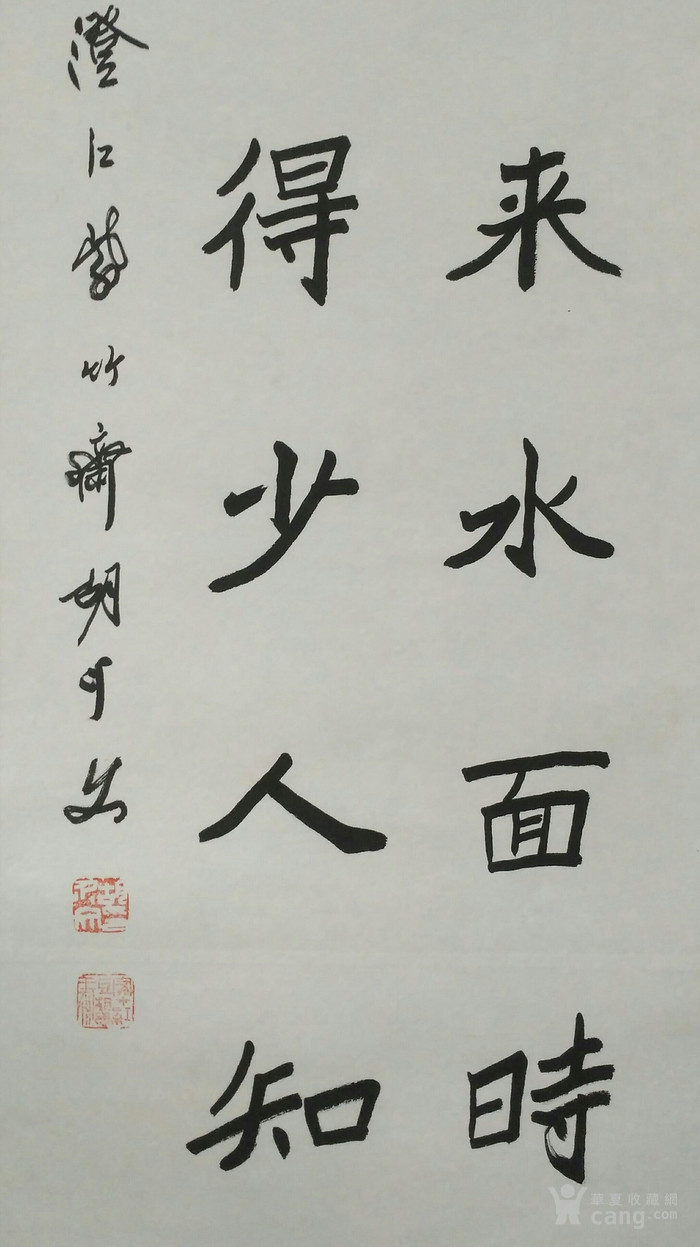 来水面時
得少人知
澄江紫竹齋胡可
華夏收藏網
cang.com